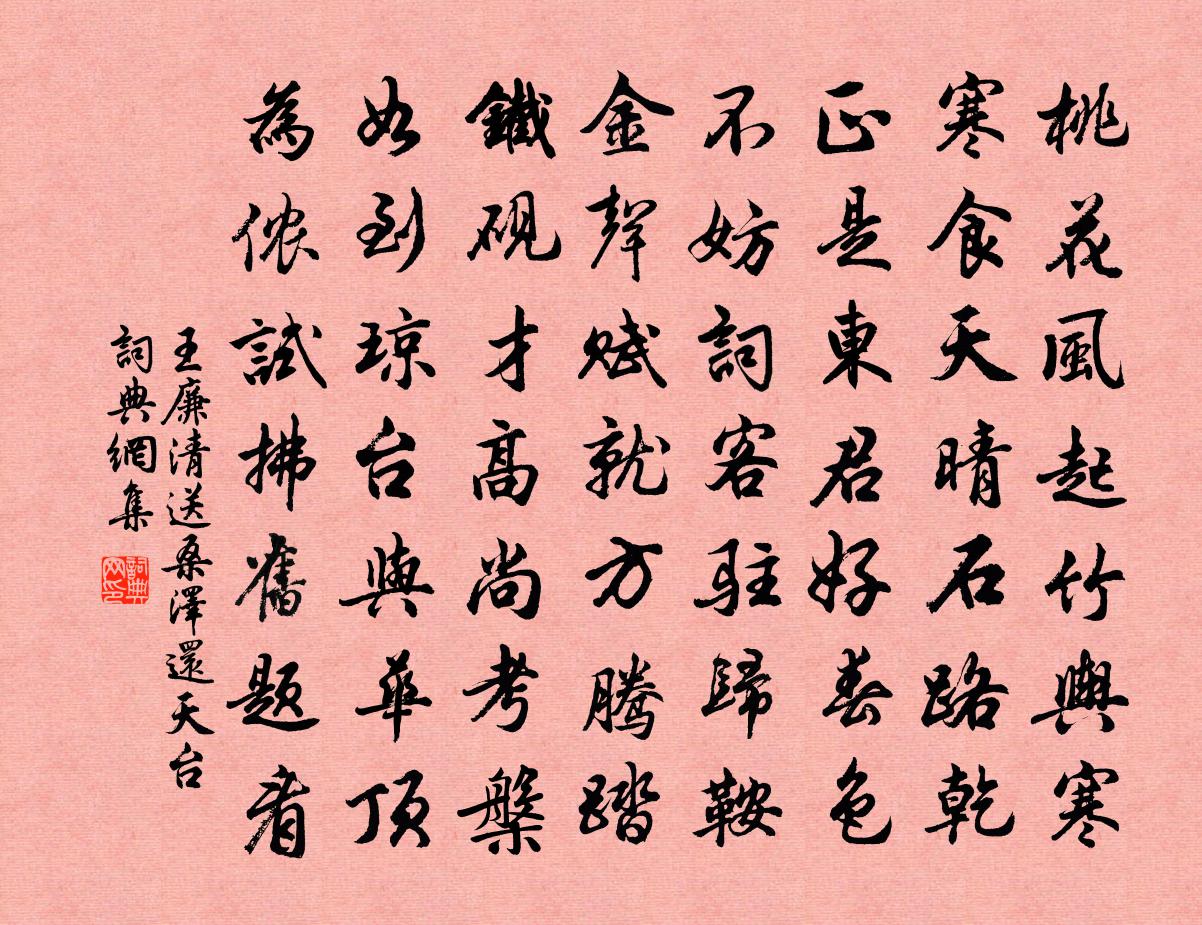 桃花風起竹輿寒
寒食天晴石路乾
正是東君好春色
不妨詞客駐歸鞍
金聲賦就方騰踏
鐵硯才高尚考槃
如到琼台與華頂
為侬試拂舊題看
王廉清送桑澤還天台
詞典網集
詞典网印